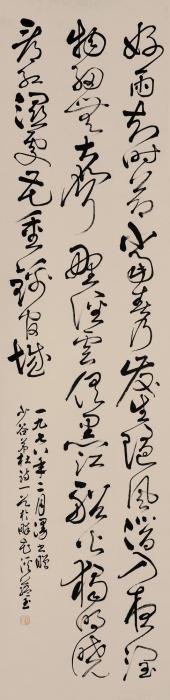 好雨知时节当春乃发生随风潜入夜润
物细无声野径云俱黑江船火独明晓
看红湿处花重锦官城
一九七八年二月书赠
少谷弟杜诗一首于